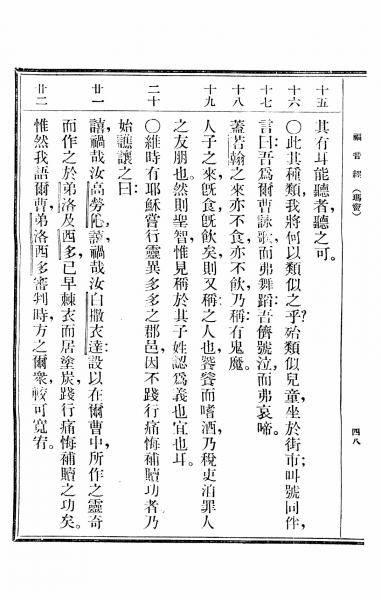 福音經 (瑪竇) 四八
十五 其有耳能聽者，聽之可。
十六 〇此其種類，我將何以類似之乎？殆類似兒童，坐於街市，叫號同伴，
十七 言曰：吾爲爾曹詠歌，而弗舞蹈；吾儕號泣，而弗哀啼。
十八 蓋若翰之來，亦不食，亦不飲，乃稱有鬼魔。
十九 人子之來，旣食，旣飲矣，則又稱之人也，饕餮而嗜酒，乃稅吏洎罪人
之友朋也。然則聖智，惟見稱於其子姓，認爲義也，宜也耳。
二十 〇維時有耶穌嘗行靈異多多之郡邑，因不踐行痛悔補贖功者，乃
始譙讓之曰：
廿一 譆，禍哉汝高勞，譆，禍哉汝白撒衣達，設以在爾曹中，所作之靈奇
而作之於弟洛及西多，已早棘衣而居塗炭，踐行痛悔補贖之功矣。
廿二 惟然，我語爾曹，弟洛西多，審判時，方之爾衆，較可寬宥。